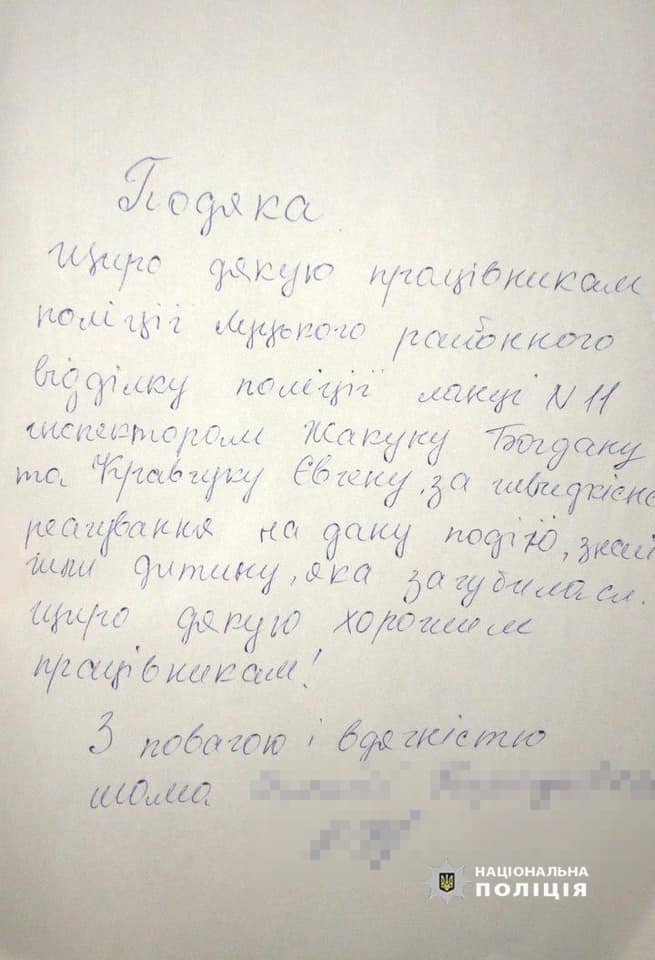 Подяка
Щиро дякую працівникам
поліції Луцького районного
відділку поліції ланці N 11
інспекторам Жакуну Богдану
та Кравчуку Євгену, за швидкісне
реагування на дану подію, знай
шли дитину, яка загубилася.
Щиро дякую хорошим
працівникам!
З повагою і вдячністю
мама
НАЦІОНАЛЬНА
ПОЛІЦІЯ